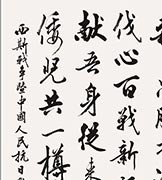 伐心百戰新
献吾身從来
倭児共一樽
西斯戰爭暨中國人民抗日